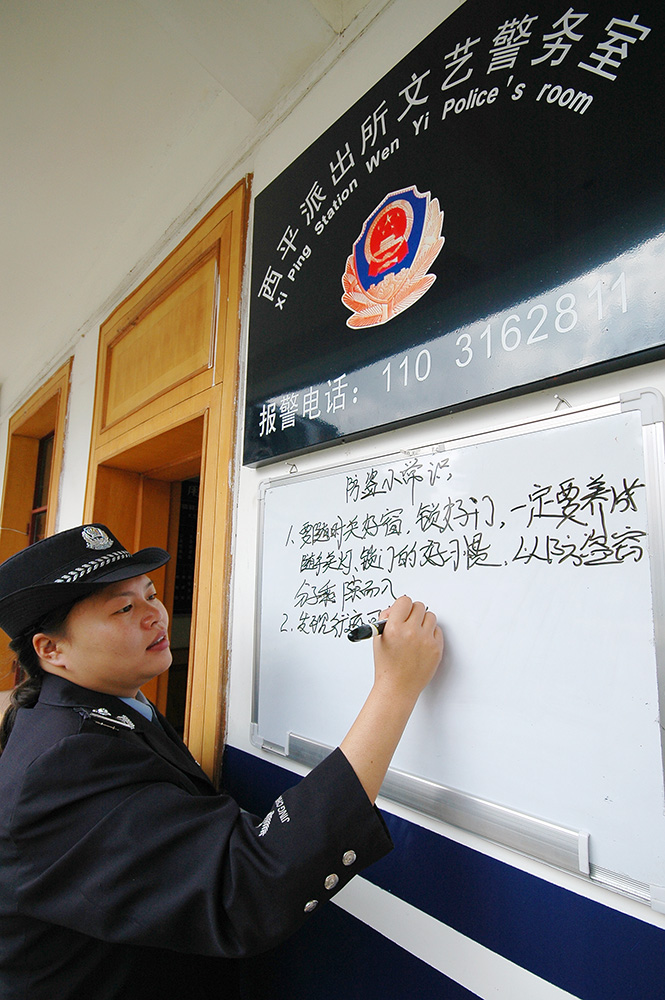 西平派出所文艺警务室
Xi Ping Station Wen Yi Police's room
报警电话：110 3162811
防盗小常识
1. 要随时关好窗，锁好门，一定要养成
随手关灯、锁门的好习惯，以防盗窃
分子乘隙而入
2. 发现
JINGCHA